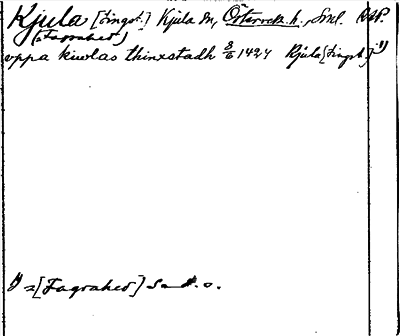 Kjula [tingst.] Kjula sn, Österrek. h., Sml. RAP.
(=Fagrahed)
uppa kiwlas thinxstadh 8/6 1424 Kjula [tingst.] 1)
1) =[Fagrahed] s. d. o.